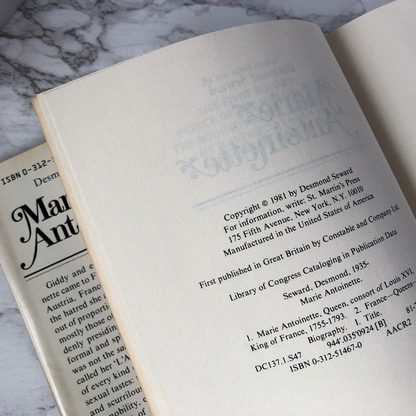 ISBN 0-312-
Desm
Mar
Ant
Giddy and e
nette came to F
Austria. Franc
the hatred she a
out of proportio
mostly those o
denly presiding
formal and sp
was not the sa
called her 'L'A
of every kind
sexual tastes.
and scurrilou
nobility, e
Marie
Antoinette
Copyright © 1981 by Desmond Seward
For information, write: St. Martin's Press
175 Fifth Avenue, New York, N.Y. 10010
Manufactured in the United States of America
First published in Great Britain by Constable and Company Ltd.
Library of Congress Cataloging in Publication Data
Seward, Desmond, 1935-
Marie Antoinette.
1. Marie Antoinette, Queen, consort of Louis XVI,
King of France, 1755-1793. 2. France—Queens—
Biography. I. Title.
DC137.1.S47 944'.035'0924 [B] 81-
ISBN 0-312-51467-0 AACR2